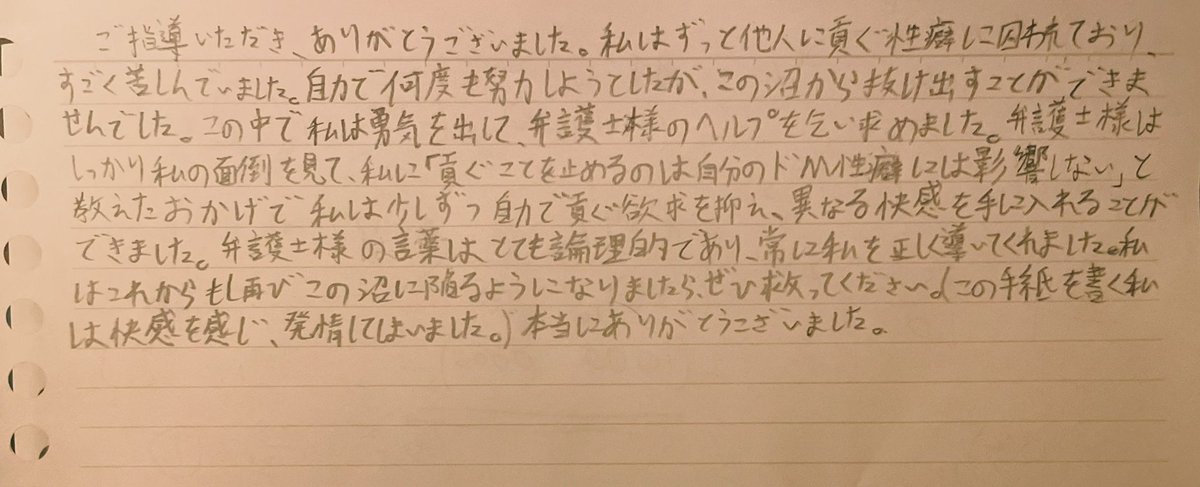 ご指導いただき、ありがとうございました。私はずっと他人に貢ぐ性癖に囚われており、
すごく苦しんでいました。自力で何度も努力しようてしたが、この沼から抜け出すことができま
せんでした。この中で私は勇気を出して、弁護士様のヘルプを乞い求めました。弁護士様は
しっかり私の面倒を見て、私に「貢ぐことを止めるのは自分のドM性癖には影響しない」と
教えたおかげで私は少しずつ自力で貢ぐ欲求を抑え、異なる快感を手に入れることが
できました。弁護士様の言葉はとても論理的であり、常に私を正しく導いてくれました。私
はこれからもし再びこの沼に陥るようになりましたら、ぜひ救ってください。(この手紙を書く私
は快感を感じ、発情してしまいました。)本当にありがとうございました。